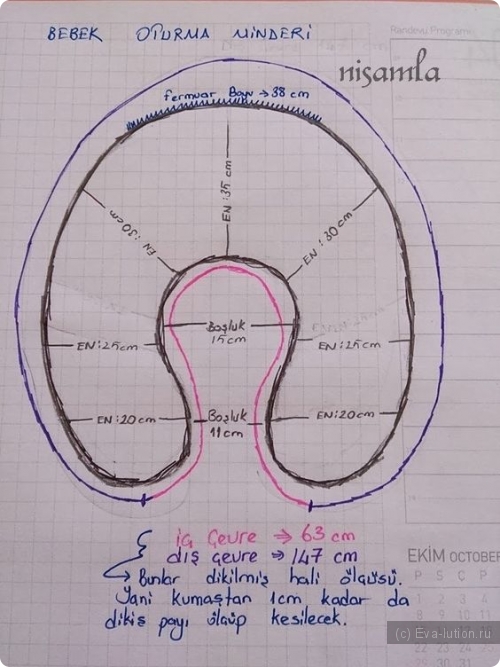 BEBEK OTURMA MİNDERİ
Randevu Programı
nişamla
fermuar Boyu → 38 cm
EN : 35 cm
EN : 30 cm
EN : 30 cm
Boşluk
15 cm
EN : 25 cm
EN : 25 cm
EN : 20 cm
Boşluk
11 cm
EN : 20 cm
iç Çevre → 63 cm
dış çevre → 147 cm
→ Bunlar dikilmiş hali ölçüsü.
Yani kumaştan 1cm kadar da
dikiş payı ölçüp kesilecek.
EKİM OCTOBER
P S Ç P
1 2 3 4
8 9 10 11
(c) Eva-lution.ru
22 23 24 25
30 31